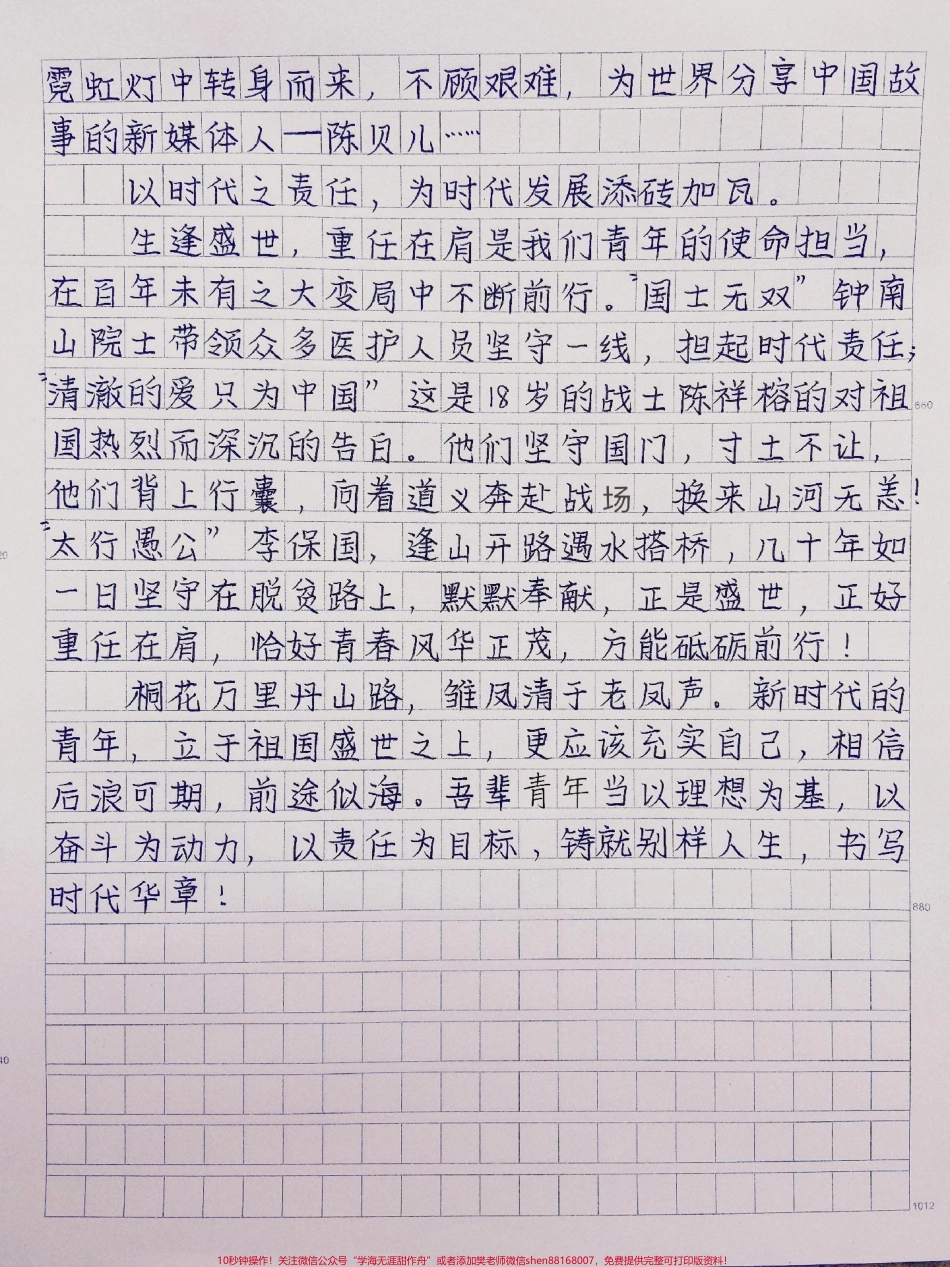 霓虹灯中转身而来，不顾艰难，为世界分享中国故
事的新媒体人——陈贝儿……
以时代之责任，为时代发展添砖加瓦。
生逢盛世，重任在肩是我们青年的使命担当，
在百年未有之大变局中不断前行。“国士无双”钟南
山院士带领众多医护人员坚守一线，担起时代责任；
“清澈的爱只为中国”这是18岁的战士陈祥榕的对祖
660
国热烈而深沉的告白。他们坚守国门，寸土不让，
他们背上行囊，向着道义奔赴战场，换来山河无恙！
“太行愚公”李保国，逢山开路遇水搭桥，几十年如
20
一日坚守在脱贫路上，默默奉献，正是盛世，正好
重任在肩，恰好青春风华正茂，方能砥砺前行！
桐花万里丹山路，雏凤清于老凤声。新时代的
青年，立于祖国盛世之上，更应该充实自己，相信
后浪可期，前途似海。吾辈青年当以理想为基，以
奋斗为动力，以责任为目标，铸就别样人生，书写
时代华章！
880
40
1012
10秒钟操作！关注微信公众号“学海无涯甜作舟”或者添加樊老师微信shen88168007，免费提供完整可打印版资料！